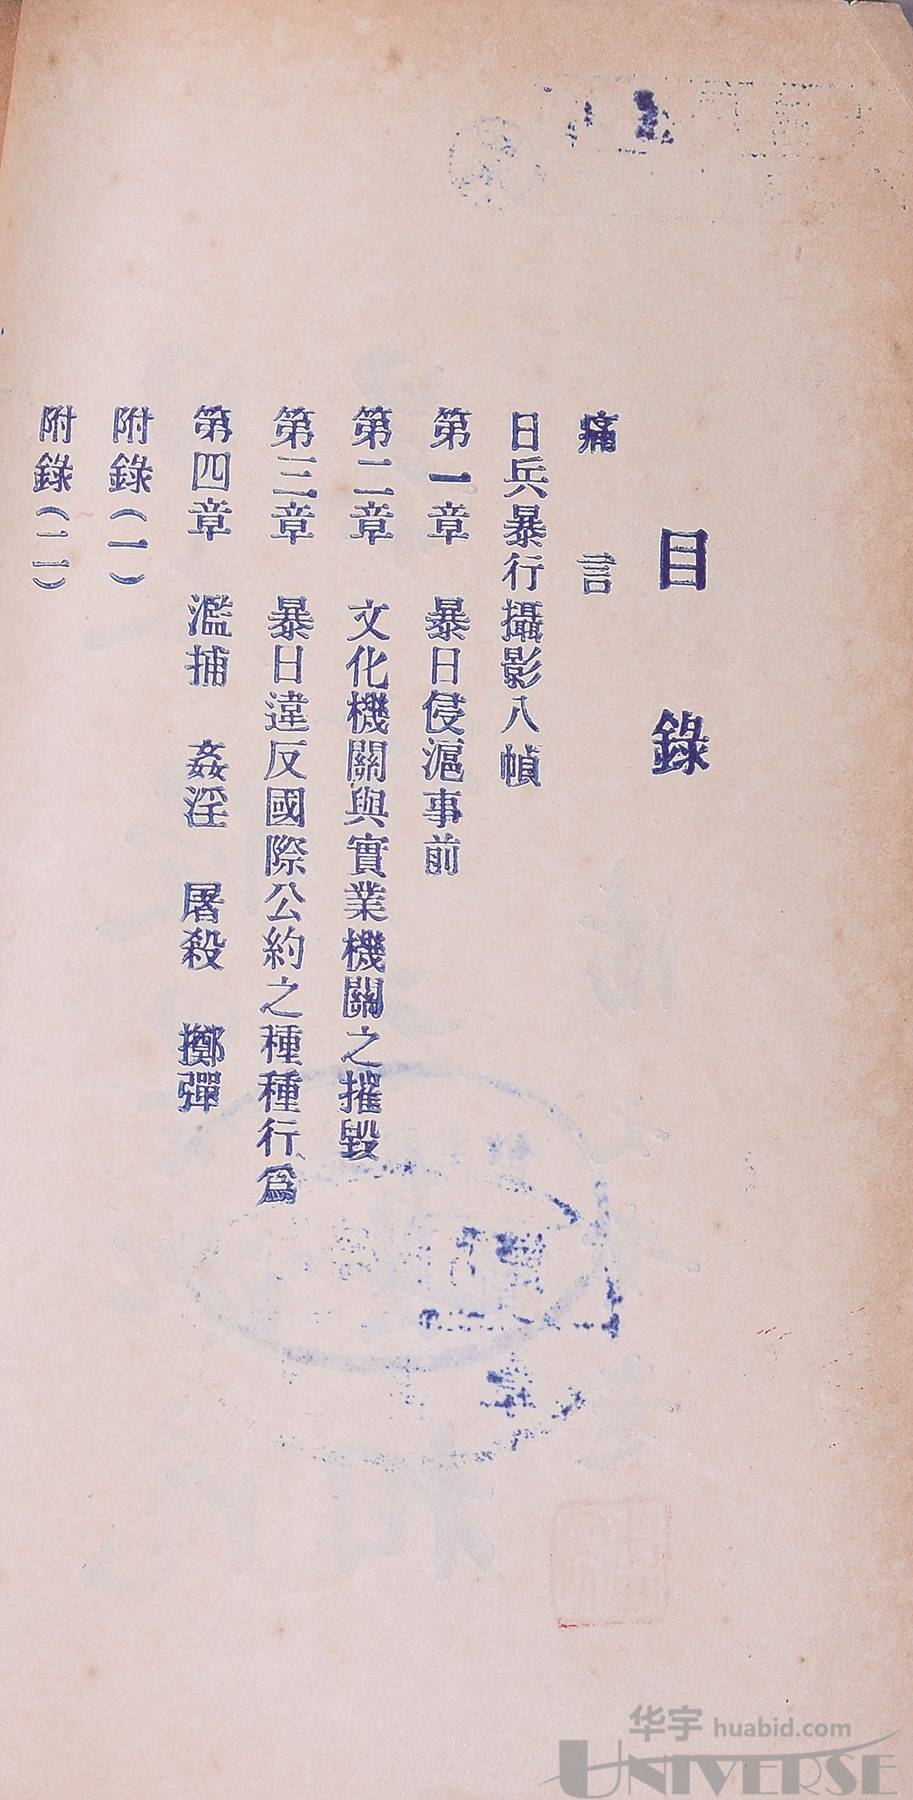 目錄
痛言
日兵暴行攝影八幀
第一章 暴日侵滬事前
第二章 文化機關與實業機關之摧毀
第三章 暴日違反國際公約之種種行為
第四章 濫捕 姦淫 屠殺 擲彈
附錄(一)
附錄(二)
华宇 huabid.com
UNIVERSE